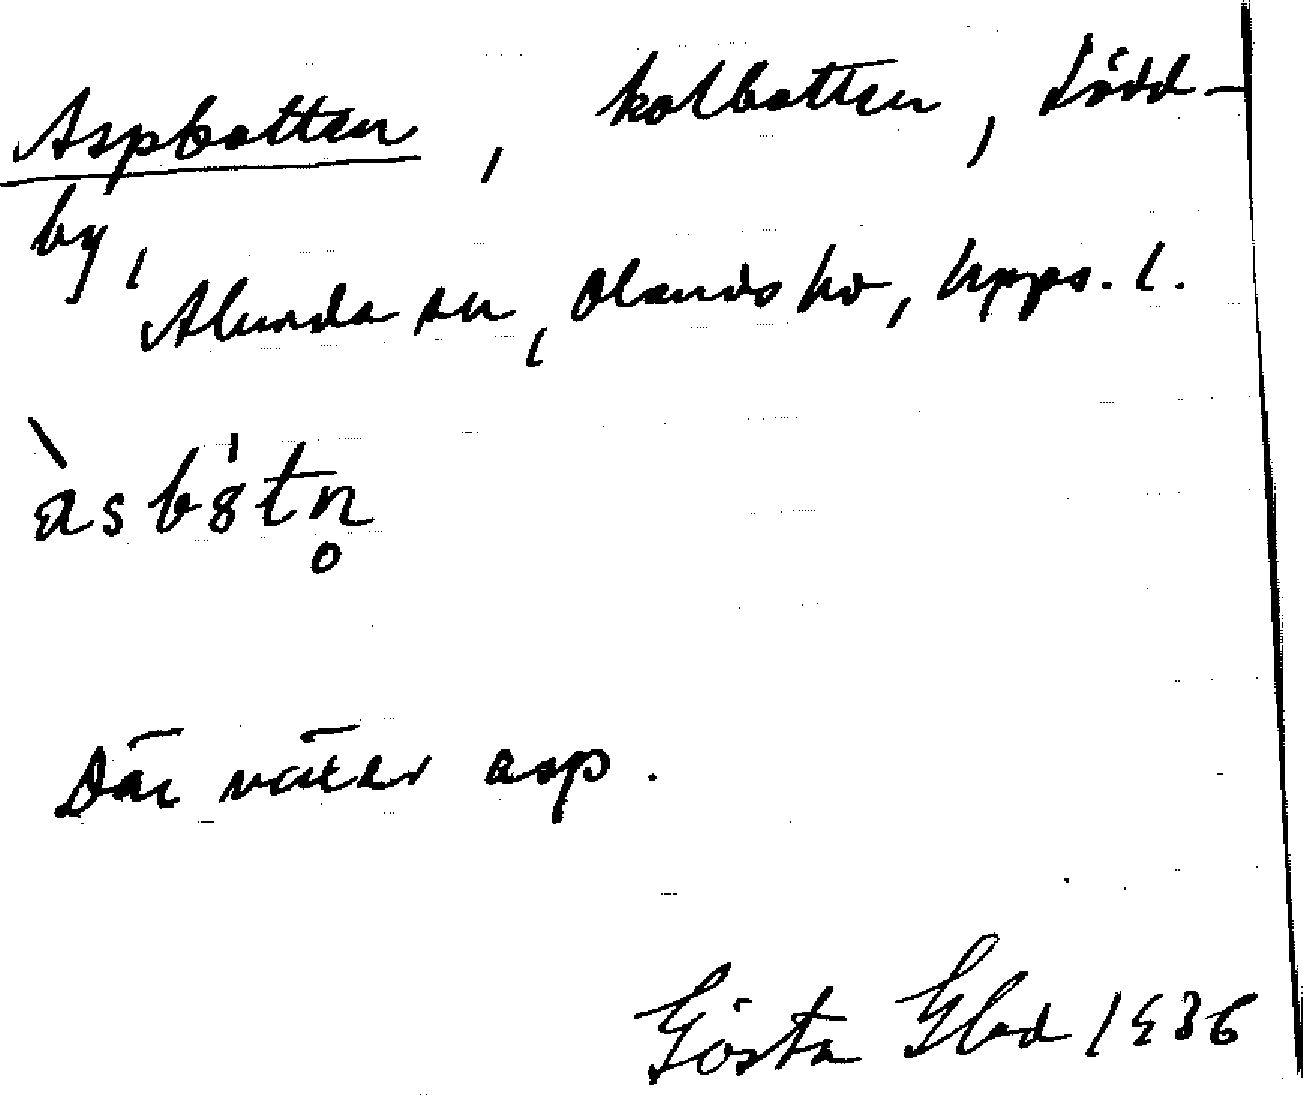 Aspbotten, kolbotten, Lödd-
by,
Alunda sn, Olands hd, Upps. l.
àsbòtn̥
Där växer asp.
Gösta Glad 1936